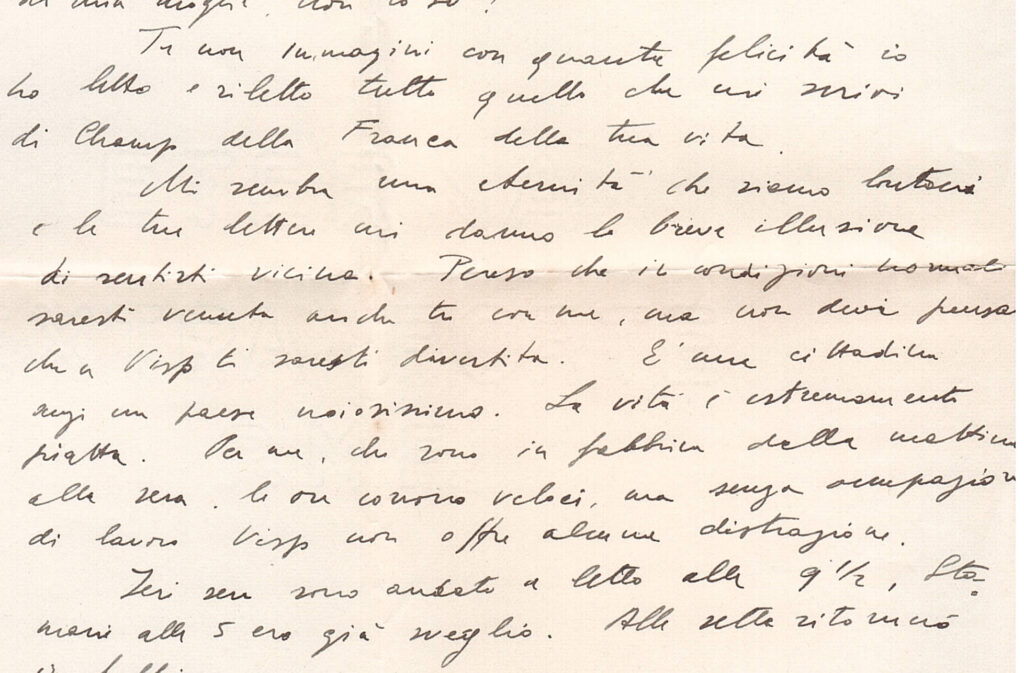 di mia moglie, non lo so!
Tu non immagini con quanta felicità io
ho letto e riletto tutto quello che mi scrivi
di Champ della Franca della tua vita.
Mi sembra una eternità che siamo lontani
e le tue lettere mi danno la breve illusione
di sentirti vicina. Penso che in condizioni normali
saresti venuta anche tu con me, ma non devi pensa
che a Visp ti saresti divertita. E' una cittadina
anzi un paese noiosissimo. La vita è estremamente
piatta. Per me, che sono in fabbrica dalla mattina
alla sera, le ore corrono veloci, ma senza occupazion
di lavoro Visp non offre alcuna distrazione.
Ieri sera sono andato a letto alle 9 1/2, Sta-
mani alle 5 ero già sveglio. Alle sette ritornerò